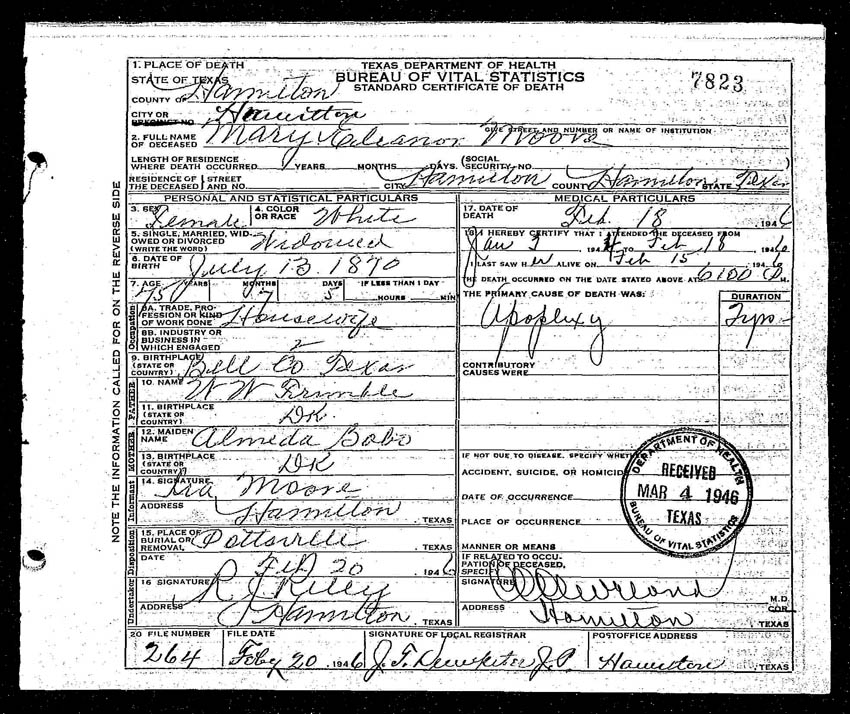 1. PLACE OF DEATH
STATE OF TEXAS
COUNTY OF Hamilton
CITY OR PRECINCT NO. Hamilton
TEXAS DEPARTMENT OF HEALTH
BUREAU OF VITAL STATISTICS
STANDARD CERTIFICATE OF DEATH
7823
GIVE STREET AND NUMBER OR NAME OF INSTITUTION
2. FULL NAME OF DECEASED Mary Eleanor Moore
LENGTH OF RESIDENCE WHERE DEATH OCCURRED YEARS MONTHS DAYS. (SOCIAL SECURITY NO. )
RESIDENCE OF THE DECEASED STREET AND NO. CITY Hamilton COUNTY Hamilton STATE Texas
PERSONAL AND STATISTICAL PARTICULARS
3. SEX Female 4. COLOR OR RACE White
5. SINGLE, MARRIED, WIDOWED OR DIVORCED (WRITE THE WORD) Widowed
6. DATE OF BIRTH July 13. 1870
7. AGE YEARS MONTHS DAYS IF LESS THAN 1 DAY
75 7 5 HOURS MIN
Occupation
8A. TRADE, PROFESSION OR KIND OF WORK DONE Housewife
8B. INDUSTRY OR BUSINESS IN WHICH ENGAGED
9. BIRTHPLACE (STATE OR COUNTRY) Bell Co Texas
FATHER
10. NAME W W Trimble
11. BIRTHPLACE (STATE OR COUNTRY) DK.
MOTHER
12. MAIDEN NAME Almeda Bobo
13. BIRTHPLACE (STATE OR COUNTRY) DK
Informant
14. SIGNATURE Ira Moore
ADDRESS Hamilton , TEXAS
Disposition
15. PLACE OF BURIAL OR REMOVAL Pottsville , TEXAS
DATE Feb 20 1946
Undertaker
16 SIGNATURE R J Riley
ADDRESS Hamilton , TEXAS
MEDICAL PARTICULARS
17. DATE OF DEATH Feb. 18 , 1946
18. I HEREBY CERTIFY THAT I ATTENDED THE DECEASED FROM
Jan 3 194 TO Feb 18 1946
I LAST SAW H er ALIVE ON Feb 15 1946
THE DEATH OCCURRED ON THE DATE STATED ABOVE AT 6:00 P M.
THE PRIMARY CAUSE OF DEATH WAS: DURATION
Apoplexy
CONTRIBUTORY CAUSES WERE
IF NOT DUE TO DISEASE, SPECIFY WHETHER
ACCIDENT, SUICIDE, OR HOMICIDE
DATE OF OCCURRENCE
PLACE OF OCCURRENCE
MANNER OR MEANS
IF RELATED TO OCCUPATION OF DECEASED, SPECIFY
SIGNATURE M.D. COR.
ADDRESS Hamilton , TEXAS
DEPARTMENT OF HEALTH
RECEIVED
MAR 4 1946
TEXAS
BUREAU OF VITAL STATISTICS
20 FILE NUMBER FILE DATE SIGNATURE OF LOCAL REGISTRAR POSTOFFICE ADDRESS
264 Feby 20 1946 J. T. Dempster J.P. Hamilton , TEXAS
NOTE THE INFORMATION CALLED FOR ON THE REVERSE SIDE